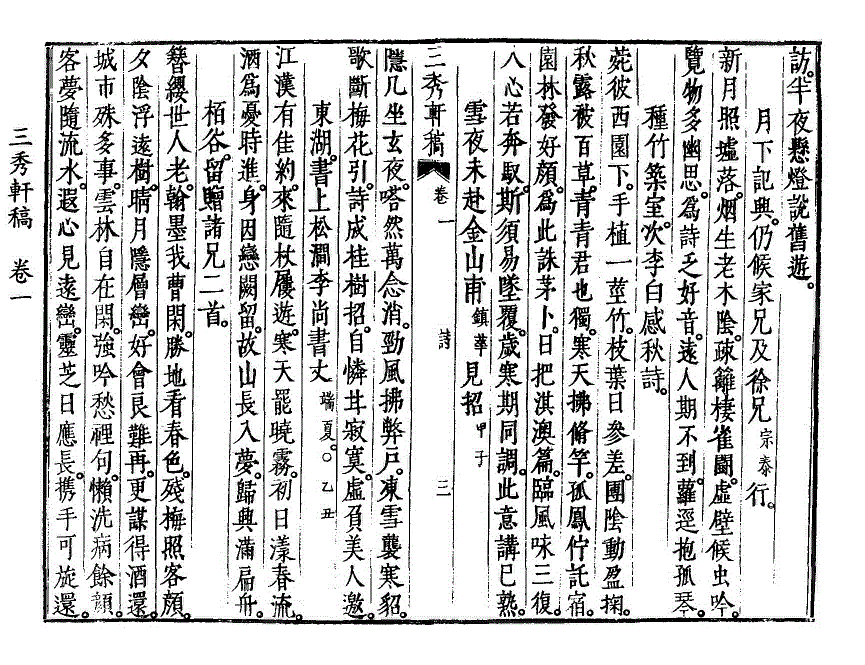 訪。半夜懸燈說舊遊。
月下記興。仍候家兄及徐兄宗泰行。
新月照墟落。烟生老木陰。疎籬棲雀鬪。虛壁候虫吟。
覽物多幽思。爲詩乏好音。遠人期不到。蘿逕抱孤琴。
種竹築室。次李白感秋詩。
菀彼西園下。手植一莖竹。枝葉日參差。團陰動盈掬。
秋露被百草。靑靑君也獨。寒天拂脩竿。孤鳳佇託宿。
園林發好顔。爲此誅茅卜。日把淇澳篇。臨風味三復。
人心若奔馭。斯須易墜覆。歲寒期同調。此意講已熟。
雪夜未赴金山甫鎭華見招甲子
三秀軒稿 卷一 詩 三
隱几坐玄夜。嗒然萬念消。勁風拂弊戶。凍雪襲寒貂。
歌斷梅花引。詩成桂樹招。自憐甘寂寞。虛負美人邀。
東湖。書上松澗李尙書丈端夏。○乙丑
江漢有佳約。來隨杖屨遊。寒天罷曉霧。初日漾春流。
酒爲憂時進。身因戀闕留。故山長入夢。歸興滿扁舟。
栢谷。留贈諸兄二首。
簪纓世人老。翰墨我曹閑。勝地看春色。殘梅照客顔。
夕陰浮遠樹。晴月隱層巒。好會良難再。更謀得酒還。
城市殊多事。雲林自在閑。強吟愁裡句。懶洗病餘顔。
客夢隨流水。遐心見遠巒。靈芝日應長。携手可旋還。
三秀軒稿 卷一